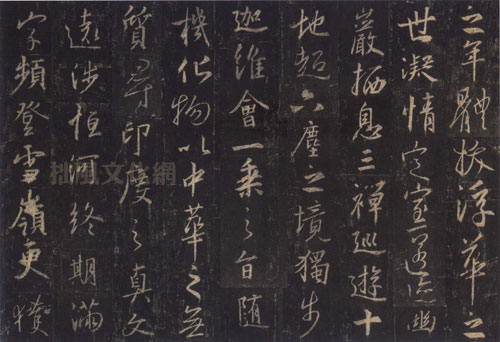 之年體拔浮華之
世凝情定室匿跡幽
巖栖息三禪巡遊十
地超六塵之境獨步
迦維會一乘之旨隨
機化物以中華之無
質尋印度之真文
遠涉恒河終期滿
字頻登雪嶺更獲
拙風文化網